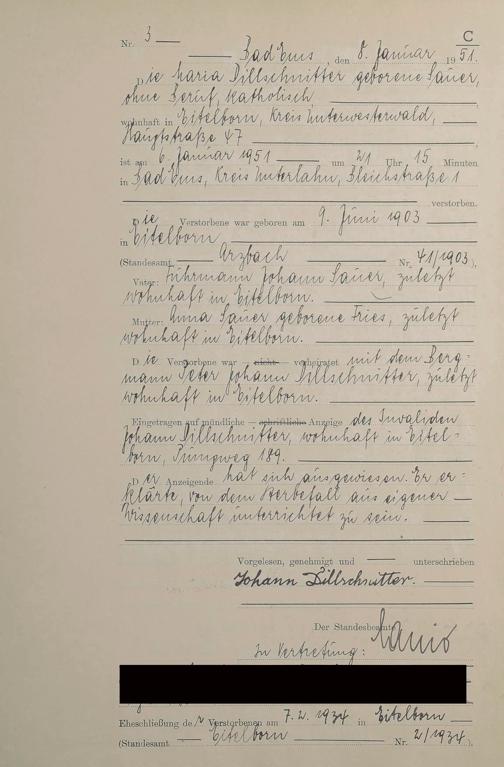 C
Nr. 3
Bad Ems, den 8. Januar 1951.
Die Maria Dillschnitter geborene Sauer,
ohne Beruf, katholisch
wohnhaft in Eitelborn, Kreis Unterwesterwald,
Hauptstraße 47
ist am 6. Januar 1951 um 21 Uhr 15 Minuten
in Bad Ems, Kreis Unterlahn, Bleichstraße 1
verstorben.
Die Verstorbene war geboren am 9. Juni 1903
in Eitelborn
(Standesamt Arzbach Nr. 41/1903).
Vater: Fuhrmann Johann Sauer, zuletzt
wohnhaft in Eitelborn.
Mutter: Anna Sauer geborene Fries, zuletzt
wohnhaft in Eitelborn.
Die Verstorbene war nicht verheiratet mit dem Berg=
mann Peter Johann Dillschnitter, zuletzt
wohnhaft in Eitelborn.
Eingetragen auf mündliche schriftliche Anzeige des Invaliden
Johann Dillschnitter, wohnhaft in Eitel=
born, 189.
Der Anzeigende hat sich ausgewiesen. Er er=
klärte, von dem Sterbefall aus eigener
Wissenschaft unterrichtet zu sein.
Vorgelesen, genehmigt und unterschrieben
Johann Dillschnitter.
Der Standesbeamte
In Vertretung:
Eheschließung der Verstorbenen am 7.2.1934 in Eitelborn
(Standesamt Eitelborn Nr. 2/1934).